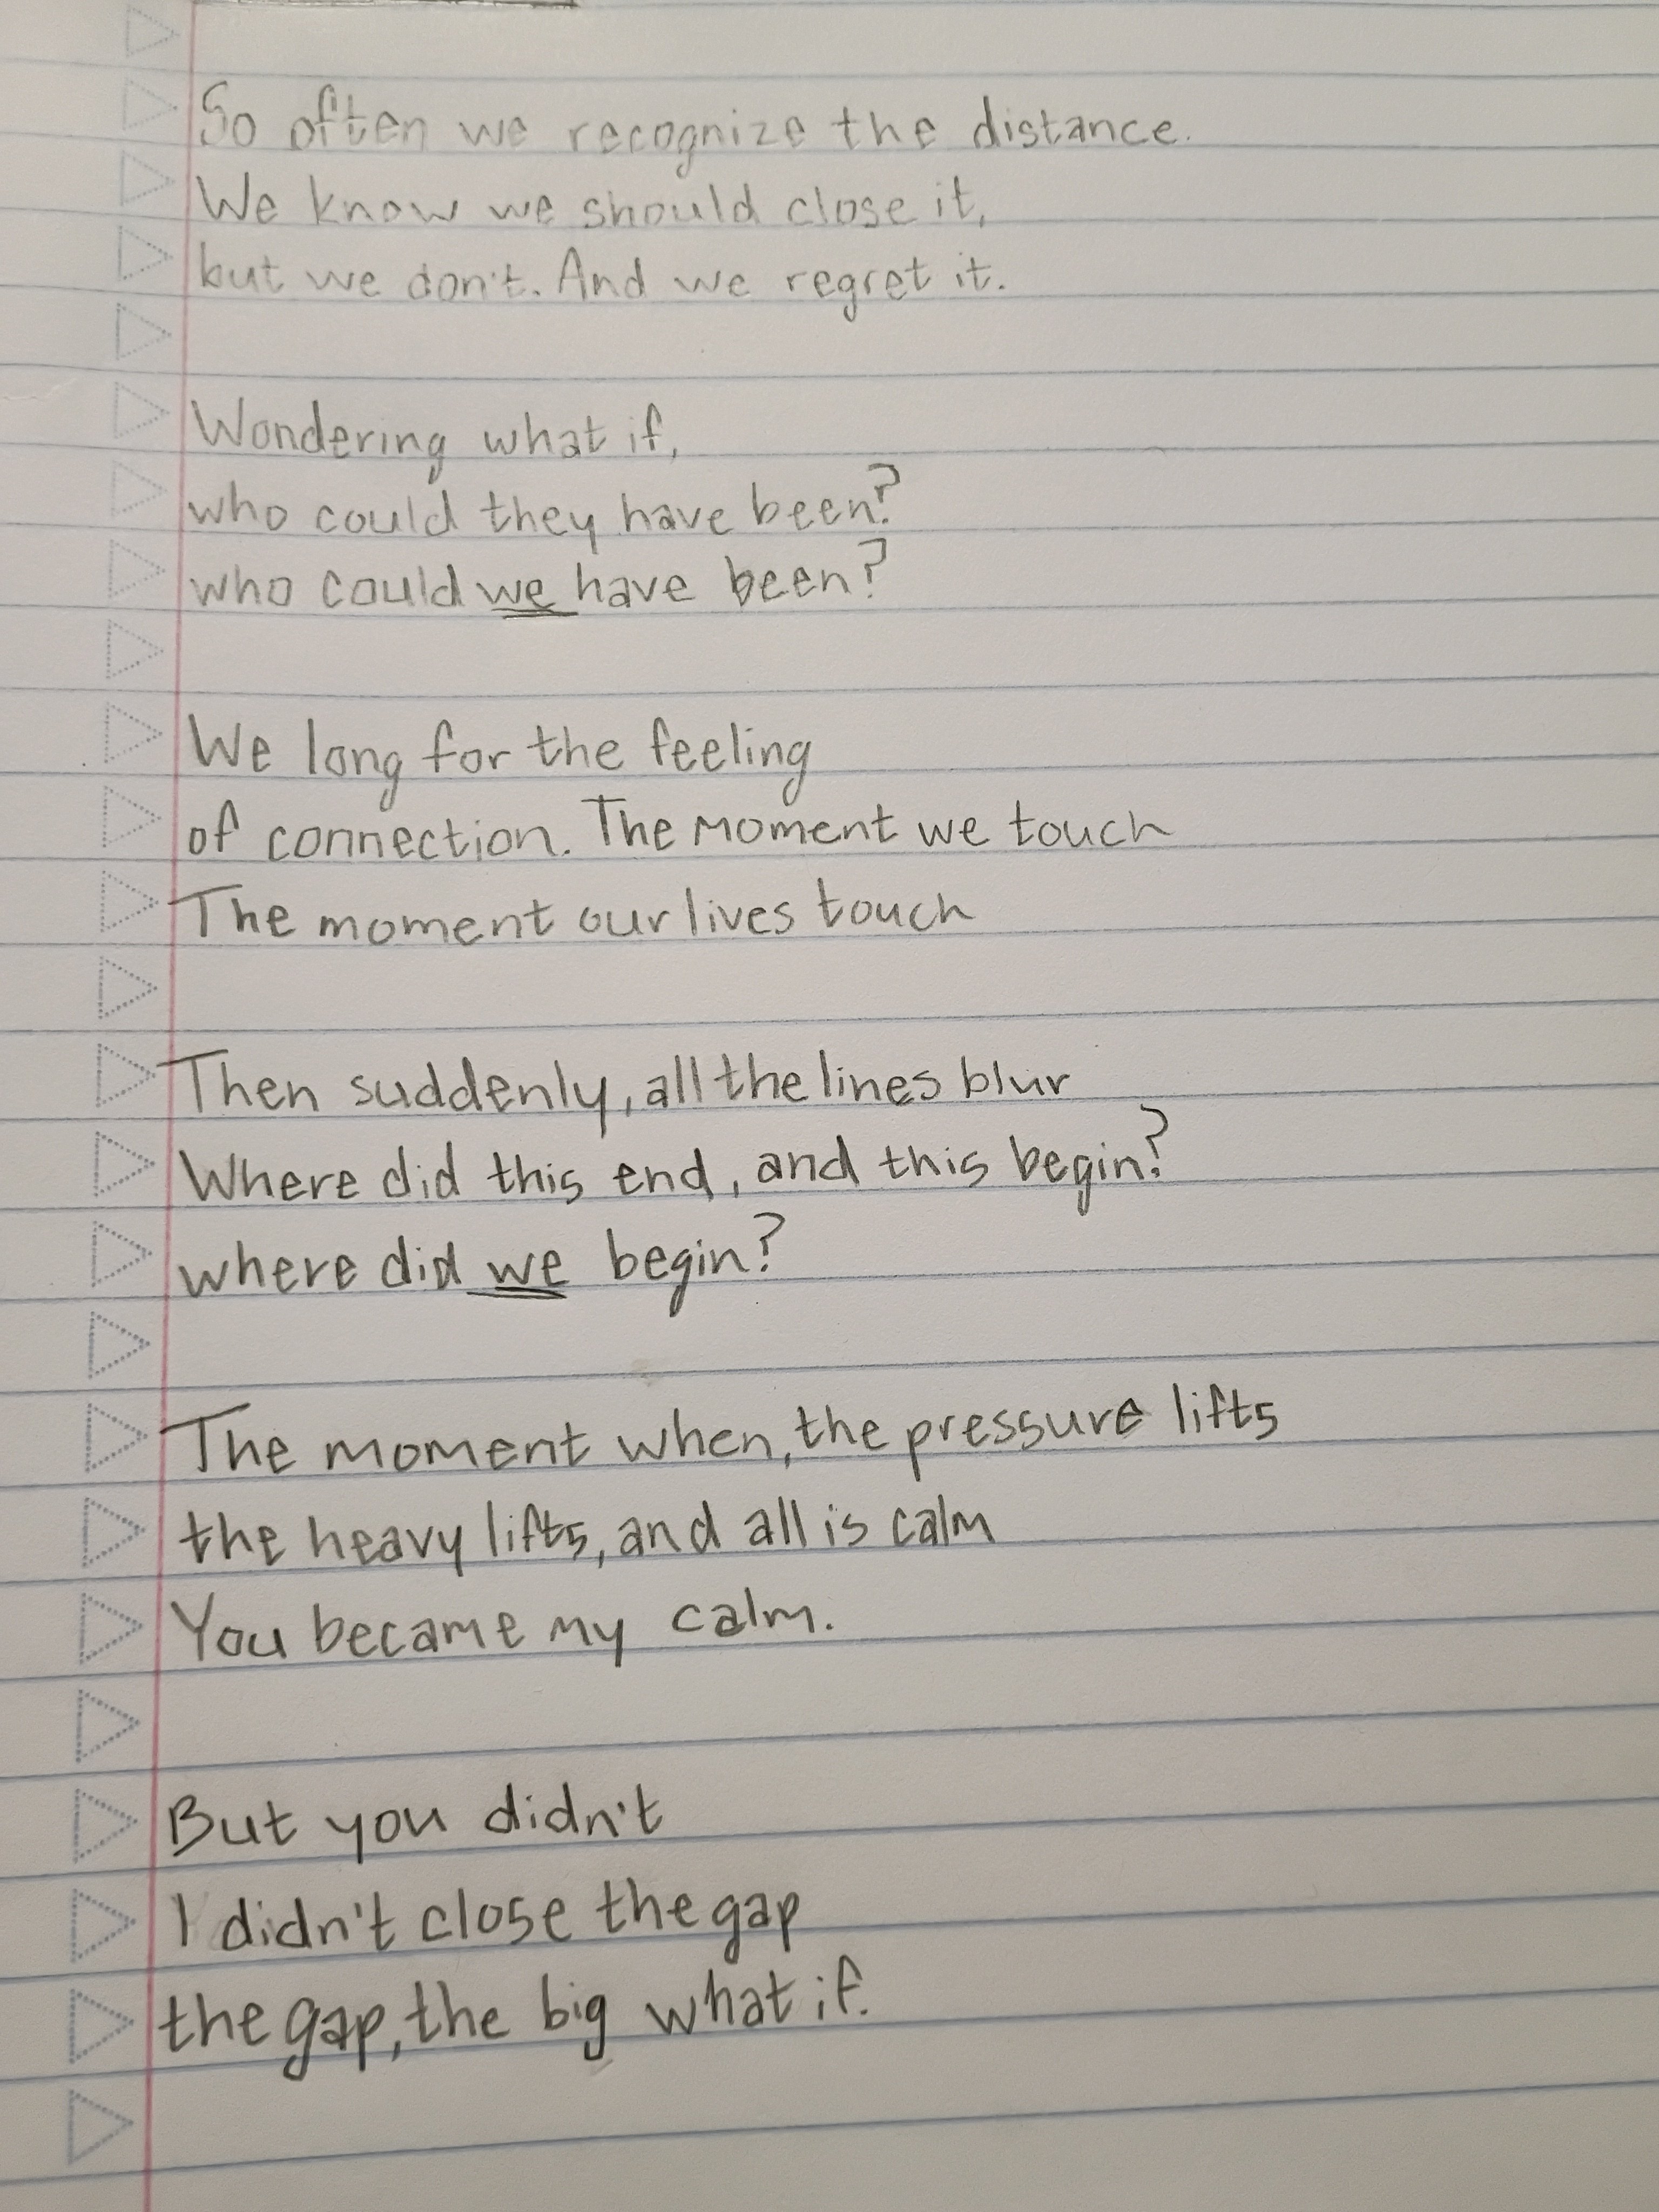 So often we recognize the distance.
We know we should close it,
but we don't. And we regret it.
Wondering what if,
who could they have been?
who could we have been?
We long for the feeling
of connection. The moment we touch
The moment our lives touch
Then suddenly, all the lines blur
Where did this end, and this begin?
where did we begin?
The moment when, the pressure lifts
the heavy lifts, and all is calm
You became my calm.
But you didn't
I didn't close the gap
the gap, the big what if.